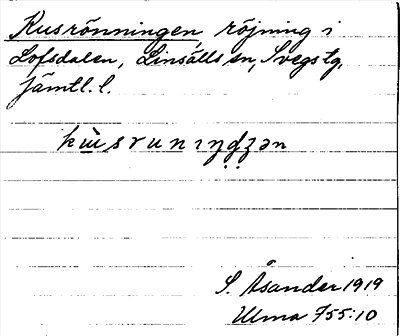 Rusrönningen, röjning i
Lofsdalen, Linsälls sn, Svegs tg,
Jämtl. l.
S. Åsander 1919
Ulma 755:10